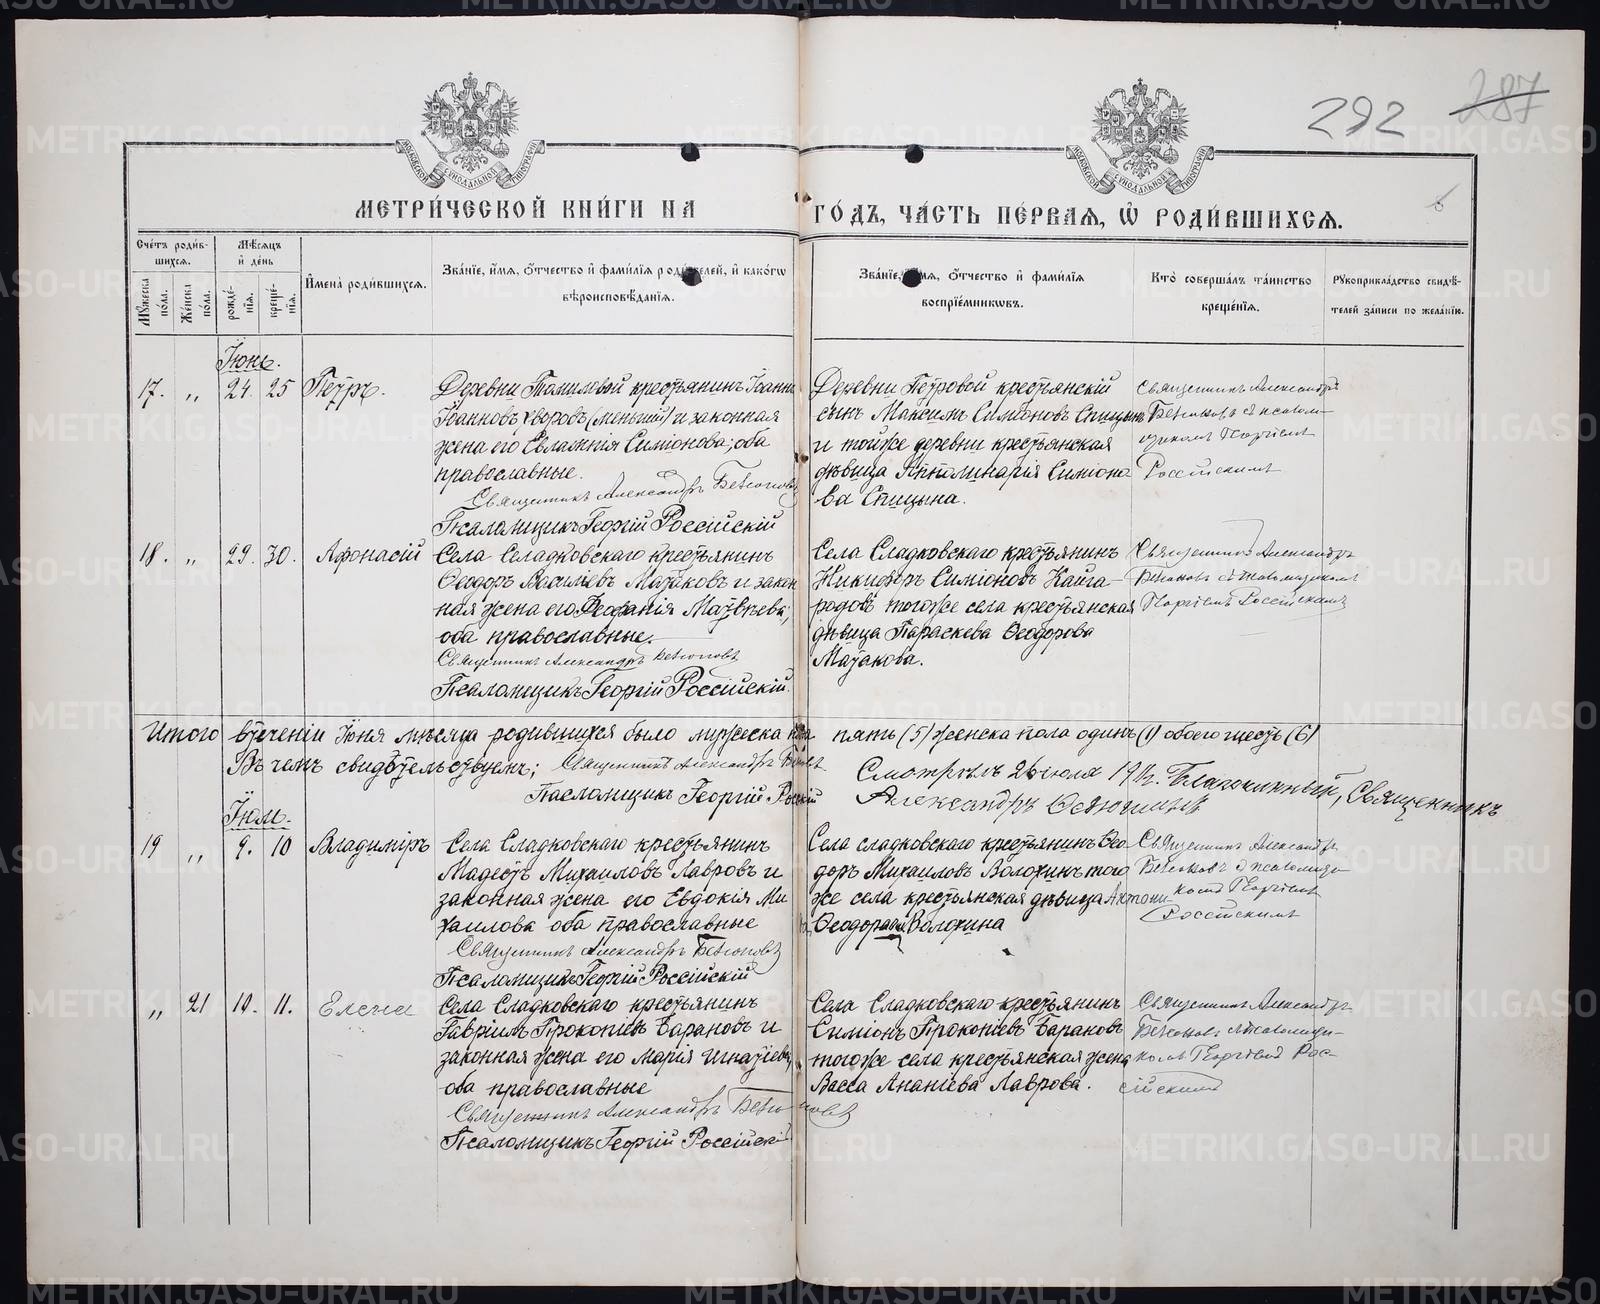 METRIKI.GASO-URAL.RU
292 287
МЕТРИ́ЧЕСКОЙ КНИ́ГИ НА ГО́ДЪ, ЧА́СТЬ ПЕ́РВАЯ, Ѡ҆ РОДИ́ВШИХСЯ.
Сче́тъ роди́в-
шихся.
Мꙋжеска по́ла.
Же́нска по́ла.
Мѣ́сяцъ
и҆ де́нь
рожде́-
нїя.
креще́-
нїя.
И҆мена̀ роди́вшихся.
Зва́нїе, и҆́мя, ѻ҆́тчество и҆ фами́лїя роди́телей, и҆ како́гѡ
вѣроисповѣ́данїя.
Зва́нїе, и҆́мя, ѻ҆́тчество и҆ фами́лїя
воспрїе́мниковъ.
Кто̀ соверша́лъ та́инство
креще́нїя.
Рꙋкоприкла́дство свидѣ́-
телей за́писи по жела́нїю.
Іюнь.
17. „ 24 25 Петръ.
Деревни Томиловой крестьянинъ Іоаннъ
Іоанновъ (меньшій) и законная
жена его Евлампія Симіонова; оба
православные.
Священникъ Александръ
Псаломщикъ Георгій Россійскій
Деревни Петровой крестьянскій
сынъ Максимъ Симіоновъ Спицынъ
и тойже деревни крестьянская
дѣвица Апполинарія Симіоно
ва Спицына.
Священникъ Александръ
съ псалом-
щикомъ Георгіемъ
Россійскимъ
18. „ 29. 30. Афонасій
Села Сладковскаго крестьянинъ
Ѳеодоръ Васильевъ Матаковъ и закон
ная жена его Матвѣева;
оба православные.
Священникъ Александръ
Псаломщикъ Георгій Россійскій.
Села Сладковскаго крестьянинъ
Никифоръ Симіоновъ Кайго-
родовъ тогоже села крестьянская
дѣвица Параскева Ѳеодорова
Матакова.
Священникъ Александръ
съ псаломщикомъ
Георгіемъ Россійскимъ
Итого втеченіи Іюня мѣсяца родившихся было мужеска пола пять (5) женска пола одинъ (1) обоего шесть (6)
Въ чемъ свидѣтельствуемъ; Священникъ Александръ
Псаломщикъ Георгій Россійскій
Смотрѣлъ 26 іюля Благочинный, Священникъ
Александръ
Іюль.
19 „ 9. 10 Владиміръ
Села Сладковскаго крестьянинъ
Модестъ Михаиловъ Лавровъ и
законная жена его Евдокія Ми
хаилова оба православные
Священникъ Александръ
Псаломщикъ Георгій Россійскій
Села сладковскаго крестьянинъ Ѳео-
доръ Михаиловъ Волохинъ того
же села крестьянская дѣвица Антони-
Ѳеодорова Волохина
Священникъ Александръ
съ псаломщи-
комъ Георгіемъ
Россійскимъ
„ 21 10. 11. Елена
Села Сладковскаго крестьянинъ
Гавріилъ Прокопіевъ Барановъ и
законная жена его Марія Игнатіева,
оба православные
Священникъ Александръ
Псаломщикъ Георгій Россійскій
Села Сладковскаго крестьянинъ
Симіонъ Прокопіевъ Барановъ
тогоже села крестьянская жена
Васса Ананіева Лаврова.
Священникъ Александръ
съ псаломщи-
комъ Георгіемъ Рос-
сійскимъ